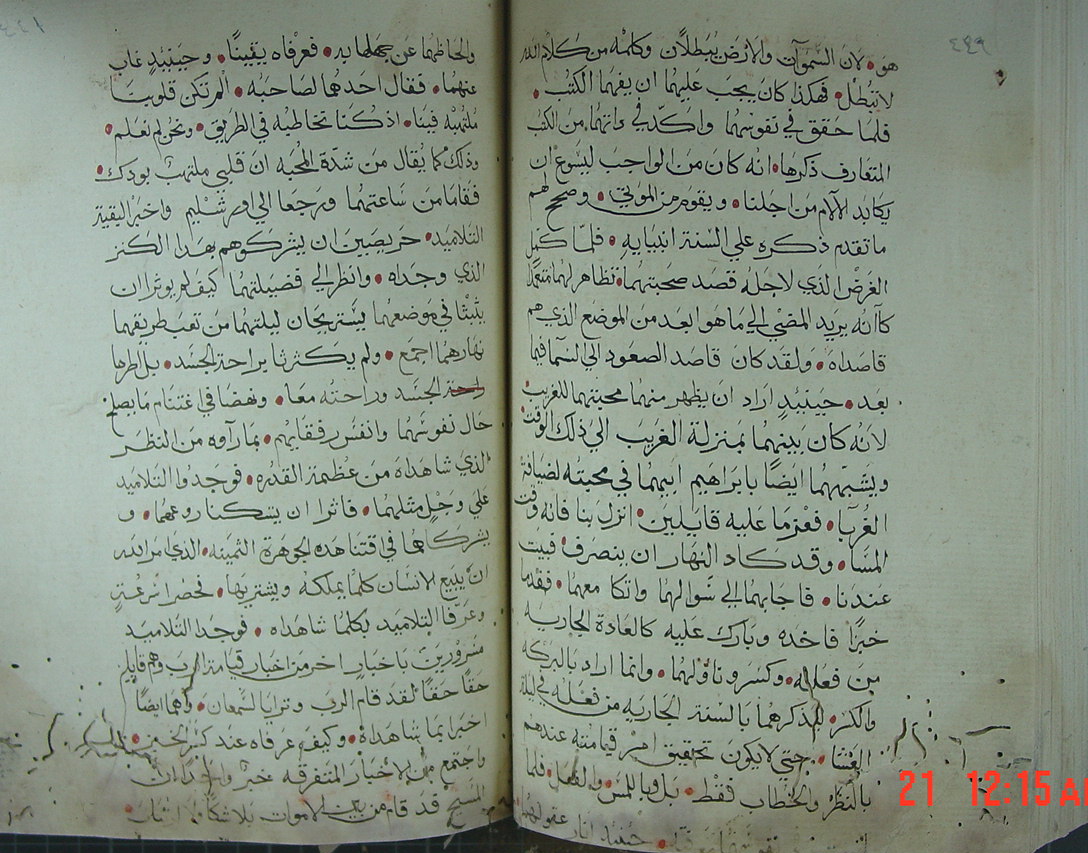 هو • لان السموات والارض يبطلان وكلمه من كلام الله
لا تبطل • فهكذا كان يجب عليهما ان يفهما الكتب •
فلما حقق في نفوسهما واكد في ذاتهما من الكتب
المتعارف ذكرها • انه كان من الواجب ليسوع ان
يكابد الآلام من اجلنا • ويقوم من الموتي • وصحح لهم
ما تقدم ذكره علي السنة انبيايه • فلما كمل
الغرض الذي لاجله قصد صحبتهما • تظاهر لهما متعملًا
كانه يريد المضي الي ما هو ابعد من الموضع الذي هم
قاصداه • ولقد كان قاصد الصعود الي السما فيما
بعد • حينيدٍ اراد ان يظهر منهما محبتهما للغريب
لانه كان بينهما بمنزلة الغريب الي ذلك الوقت
ويشبههما ايضًا بابراهيم ابيهما في محبته لضيافة
الغربا • فعزما عليه قايلين • انزل بنا فانه وقت
المسا • وقد كاد النهار ان ينصرف فبيت
عندنا • فاجابهما الي سوالهما واتكا معهما • فقدما
خبزًا فاخده وبارك عليه كالعادة الجاريه
من فعله • وكسر وناولهما • وانما اراد بالبركه
والكسر • ليذكرهما بالسنة الجاريه من فعله في ليلة
العشا • حتي لا يكون تحقيق امر قيامته عندهم
بالنظر والخطاب فقط • بل وباللمس • والفعل • فلما
حينيد انار عقولهما
والحاظهما عن جهلهما به • فعرفاه يقينًا • وحينيدٍ غاب
عنهما • فقال احدهما لصاحبه • المر تكن قلوبنا
ملتهبه فينا • اذ كنا نخاطبه في الطريق • ونحن لم نعلم •
وذلك كما يقال من شدة المحبه ان قلبي ملتهب بودك •
فقاما من ساعتهما ورجعا الي اورشليم واخبرا بقية
التلاميد • حريصين ان يشركوهم بهدا الكنز
الذي وجداه • وانظر الي فضيلتهما كيف لم يوثرا ان
يثبتا في موضعهما يستريحان ليلتهما من تعب طريقهما
نهارهما اجمع • ولم يكترثا براحة الجسد • بل اطرحا
راحة الجسد وراحته معا • ونهضا في اغتنام ما يصلح
حال نفوسهما وانفس رفقايهم • بما راوه من النظر
الذي شاهداه من عظمة القدره • فوجدوا التلاميد
علي وجل مثلهما • فاثرا ان يسكنا روعهما • و
يشركاهما في اقتنا هده الجوهرة الثمينه • الذي امر الله
ان يبيع الانسان كلما يملكه ويشتريها • فحضرا مسرعين
وعرفا التلاميد بكلما شاهداه • فوجدا التلاميد
مسرورين باخبار اخر من اخبار قيامة الرب وهم قايلين
حقًا حقًا لقد قام الرب وترايا لشمعان • وهما ايضًا
اخبرا بما شاهداه • وكيف عرفاه عند كسر الخبز •
واجتمع من الاخبار المتفرقه خبر واحدًا ان
المسيح قد قام من بين الاموات بلا شك
21 12:15 A